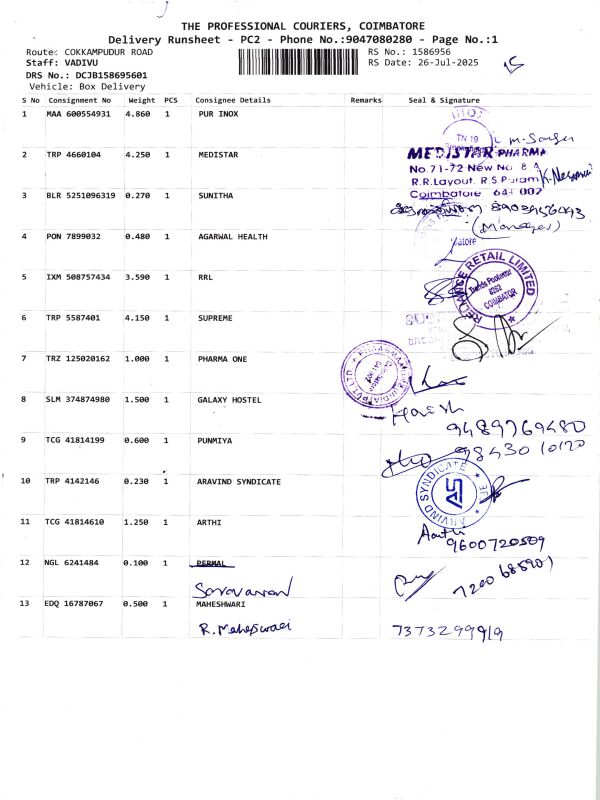 THE PROFESSIONAL COURIERS, COIMBATORE
Delivery Runsheet - PC2 - Phone No.:9047080280 - Page No.:1
Route: COKKAMPUDUR ROAD
RS No.: 1586956
Staff: VADIVU
RS Date: 26-Jul-2025
DRS No.: DCJB158695601
Vehicle: Box Delivery
S No Consignment No Weight PCS Consignee Details Remarks Seal & Signature
1 MAA 600554931 4.860 1 PUR INOX
TN 19
2 TRP 4660104 4.250 1 MEDISTAR
MEDISTAR PHARMA
No.71-72 New No 8 A
R.R.Layout, R.S Puram
Coimbatore 641 002
3 BLR 5251096319 0.270 1 SUNITHA
8903956093
(Manager)
4 PON 7899032 0.480 1 AGARWAL HEALTH
5 IXM 508757434 3.590 1 RRL
RELIANCE RETAIL LIMITED
Trends Footwear
COIMBATOR
6 TRP 5587401 4.150 1 SUPREME
7 TRZ 125020162 1.000 1 PHARMA ONE
8 SLM 374874980 1.500 1 GALAXY HOSTEL
Harish
9489769480
9 TCG 41814199 0.600 1 PUNMIYA
98430 10170
10 TRP 4142146 0.230 1 ARAVIND SYNDICATE
ARVIND SYNDICATE
AS
11 TCG 41814610 1.250 1 ARTHI
Aarthi
9600720509
12 NGL 6241484 0.100 1 PERMAL
Saravanan
7200685901
13 EDQ 16787067 0.500 1 MAHESHWARI
R. Maheswari
7373299919